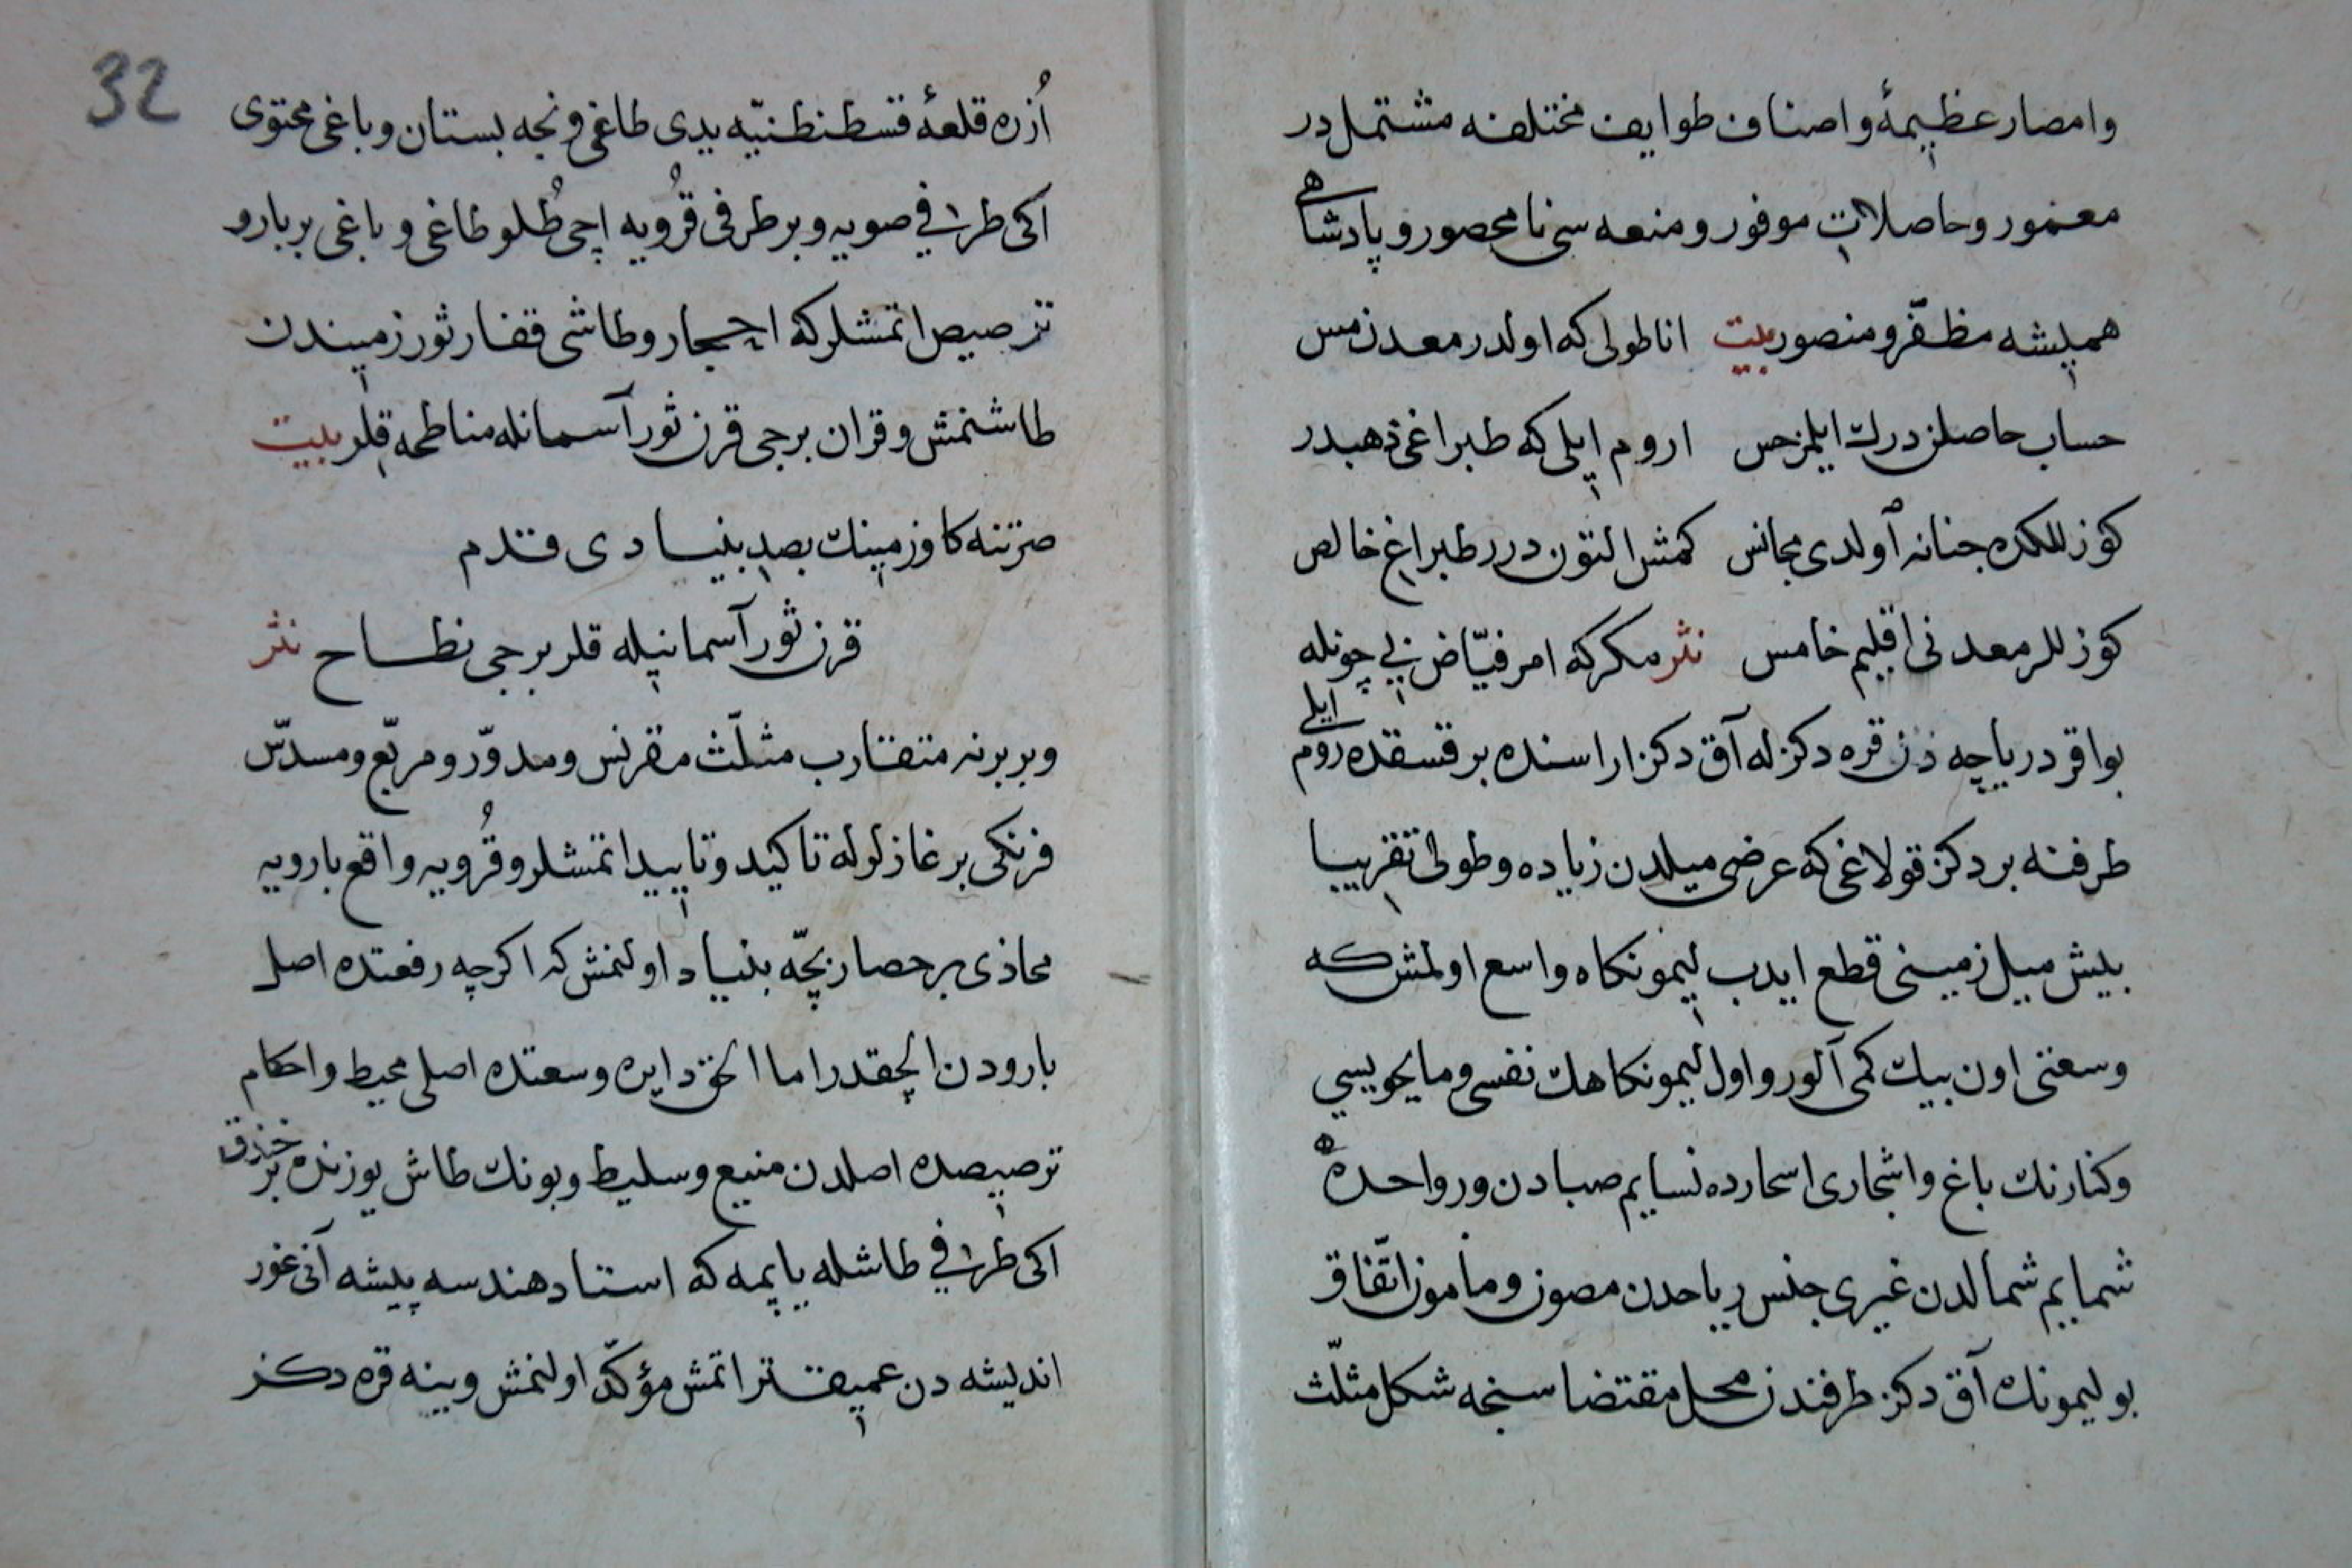 وامصار عظيمۀ واصناف طوايف مختلفه مشتملدر
معمور وحاصلات موفور ومنعه سى نامحصور وپادشاهى
هميشه مظفّر ومنصور بيت اناطولى كه اولدر معدن مس
حساب حاصلن درك ايلمز حس اروم ايلى كه طبراغى ذهبدر
كوزللكده جنانه اولدى مجانس كمش التون درر طبراغ خالص
كوزللر معدنى اقليم خامس نثر مكر كه امر فيّاض بى چونله
بواقر درياچه دن قره دكزله آق دكز اراسنده بر قسقده روم ايلى
طرفنه بر دكز قولاغى كه عرضى ميلدن زياده وطولى تقريبا
بيش ميل زمينى قطع ايدب ليمونكاه واسع اولمش كه
وسعتى اون بيك كمى آلور واول ليمونكاهك نفسى وما يحويسى
وكنارنك باغ واشجارى اسحارده نسايم صبادن ورواحده
شمايم شمالدن غيرى جنس رياحدن مصون ومأمون اتّفاق
بو ليمونك آق دكز طرفندن محل مقتضاسنجه شكل مثلّث
32
اُزره قلعۀ قسطنطنيّه يدى طاغى ونجه بستان وباغى محتوى
اكى طرفى صويه وبر طرفى قُرويه اچى طُلو طاغى وباغى بر بارو
ترصيص اتمشلر كه احجار وطاشى قفار ثور زميندن
طاشنمش وقران برجى قرن ثور آسمانله مناطحه قلر بيت
صرتنه كاو زمينك بصد بنيادى قدم
قرن ثور آسمانيله قلر برجى نطاح نثر
وبر برنه متقارب مثلّث مقرنس ومدوّر ومربّع ومسدّس
فرنكى برغازلرله تاكيد وتاييد اتمشلر وقُرويه واقع بارويه
محاذى بر حصار بچّه بنياد اولنمش كه اكرچه رفعتده اصل
بارودن الچقدر اما الحق دايره وسعتده اصلى محيط واحكام
ترصيصده اصلدن منيع وسليط وبونك طاش يوزنده بر خندق
اكى طرفى طاشله ياپمه كه استاد هندسه پيشه آنى غور
انديشه دن عميقتر اتمش مؤكّد اولنمش وينه قره دكز